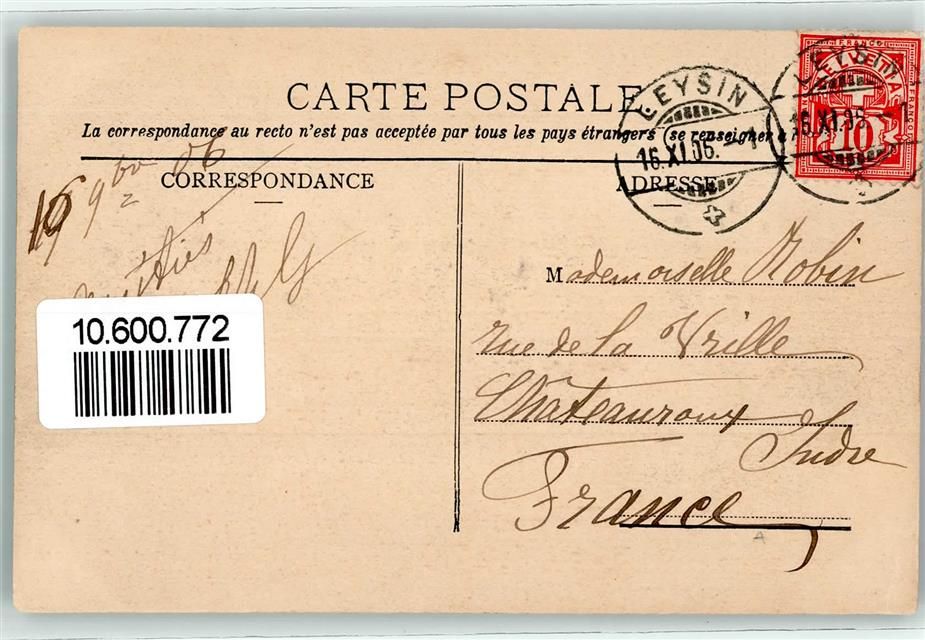 CARTE POSTALE
La correspondance au recto n'est pas acceptée par tous les pays étrangers (se renseigner à
CORRESPONDANCE
16 9bre 06
10.600.772
LEYSIN
16.XI.06.-1
LEYSIN
16.XI.06.-1
FRANCO
HELVETIA
10
ADRESSE
Mademoiselle Robin
rue de la Vrille
Chateauroux
Indre
France